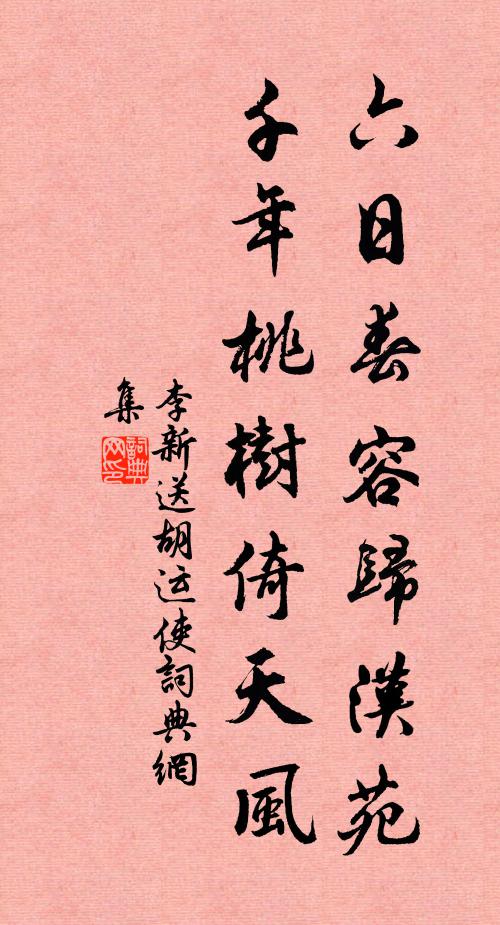 六日春容歸漢苑
千年桃樹倚天風
李新送胡运使詞典網
集
詞典网印